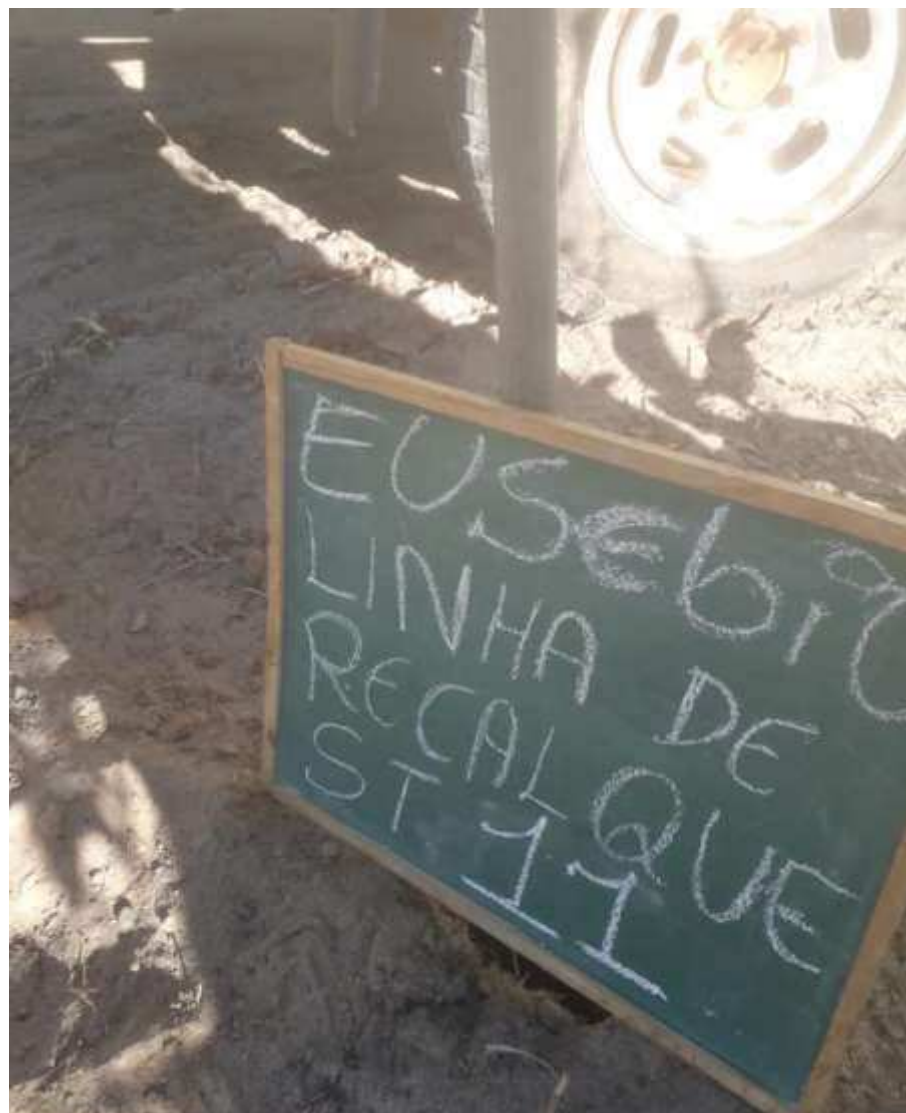 EUSEbiO
LINHA DE
RECALQUE
ST 11